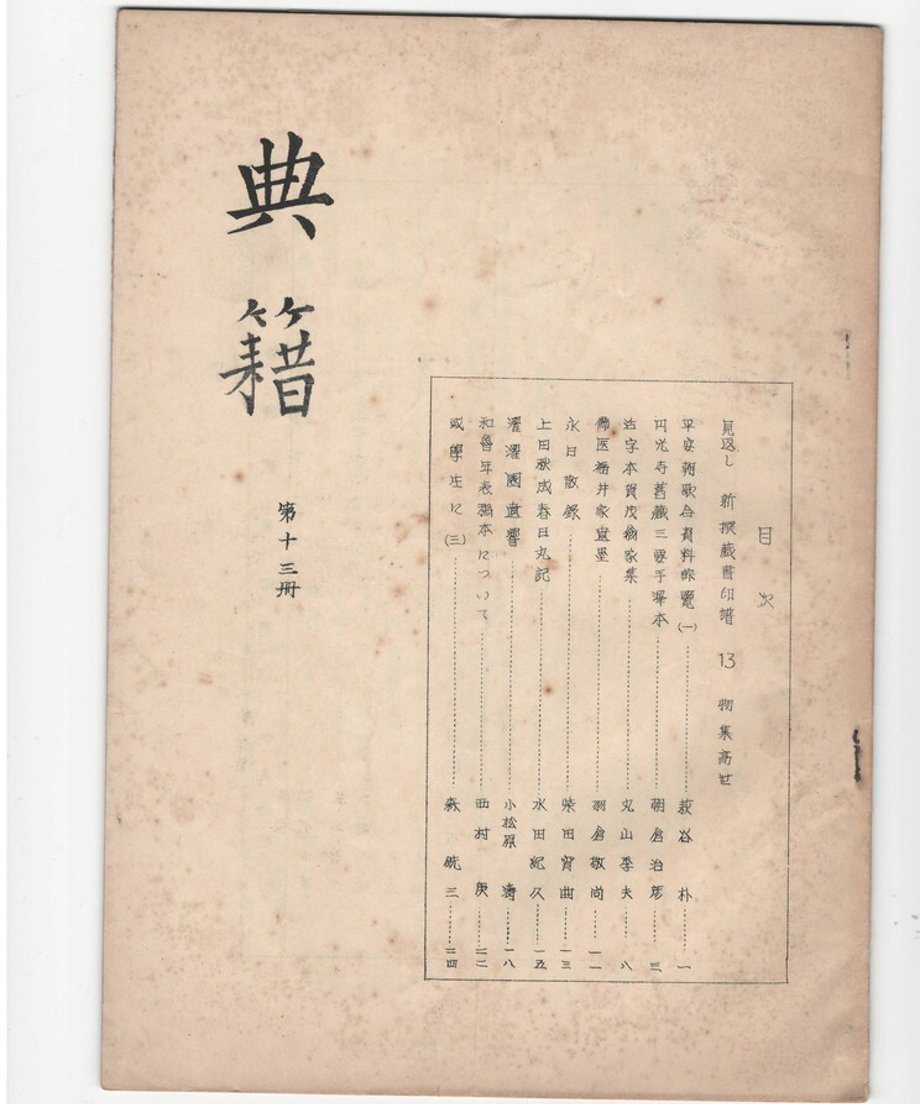 典籍
第十三冊
目次
見返し 新撰蔵書印譜 13 物集高世
平安朝歌合資料(一) 萩谷 朴 一
円光寺旧蔵三要手澤本 朝倉治彦 三
古字本賀茂翁家集 丸山季夫 八
儒医福井家遺墨 羽倉敬尚 一一
永日散録 柴田宵曲 一三
上田秋成春日丸記 水田紀久 一五
濯濯園遺響 小松原 濤 一八
和魯年表稿本について 西村 庚 二二
或學生に(三) 森 銑三 二四